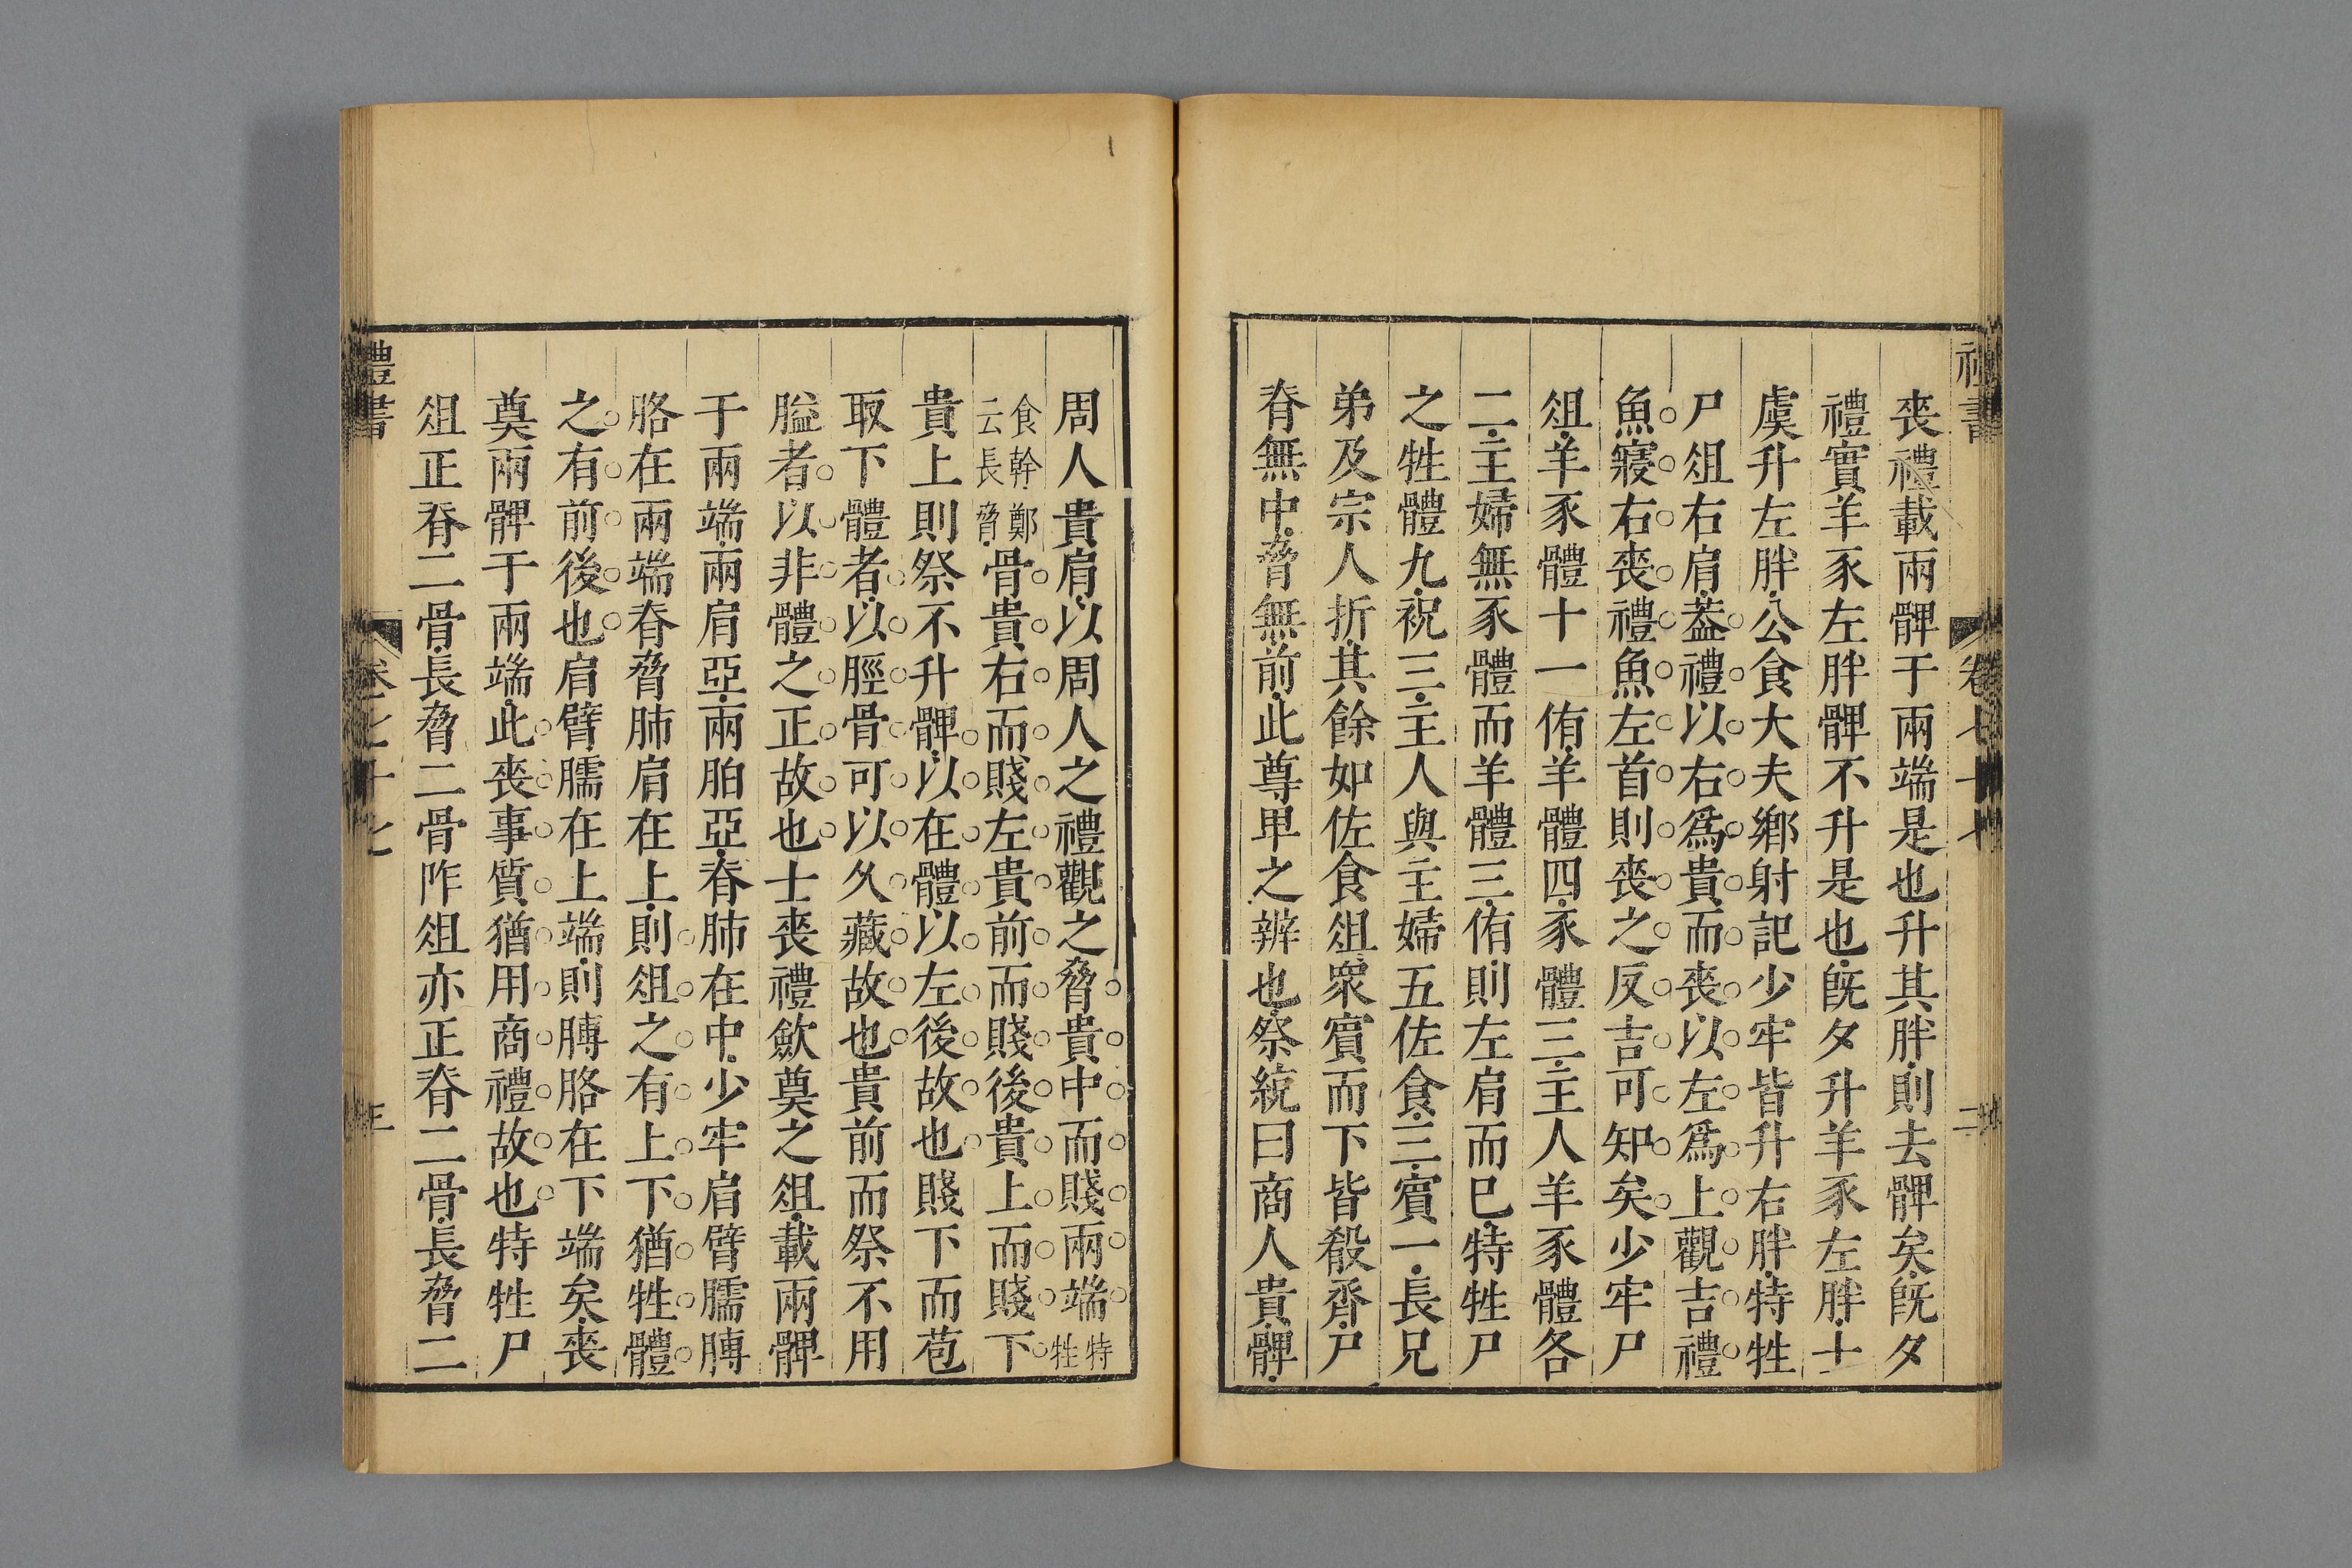 喪禮載兩髀于兩端是也升其胖則去髀矣旣夕
禮實羊豕左胖髀不升是也旣夕升羊豕左胖士
虞升左胖公食大夫鄉射記少牢皆升右胖特牲
尸俎右肩葢禮以右爲貴而喪以左爲上觀吉禮
魚寢右喪禮魚左首則喪之反吉可知矣少牢尸
俎羊豕體十一侑羊體四豕體三主人羊豕體各
二主婦無豕體而羊體三侑則左肩而已特牲尸
之牲體九祝三主人與主婦五佐食三賓一長兄
弟及宗人折其餘如佐食俎衆賓而下皆殽脀尸
脊無中脅無前此尊𤰞之辨也祭統曰商人貴髀
禮書
卷七十七
二
周人貴肩以周人之禮觀之脅貴中而賤兩端特牲
食幹鄭云長脅骨貴右而賤左貴前而賤後貴上而賤下
貴上則祭不升髀以在體以左後故也賤下而苞
取下體者以脛骨可以久藏故也貴前而祭不用
膉者以非體之正故也士喪禮斂奠之俎載兩髀
于兩端兩肩亞兩胉亞脊肺在中少牢肩臂臑膊
胳在兩端脊脅肺肩在上則俎之有上下猶牲體
之有前後也肩臂臑在上端則膊胳在下端矣喪
奠兩髀于兩端此喪事質猶用商禮故也特牲尸
俎正脊二骨長脅二骨阼俎亦正脊二骨長脅二
禮書
卷七十七
三